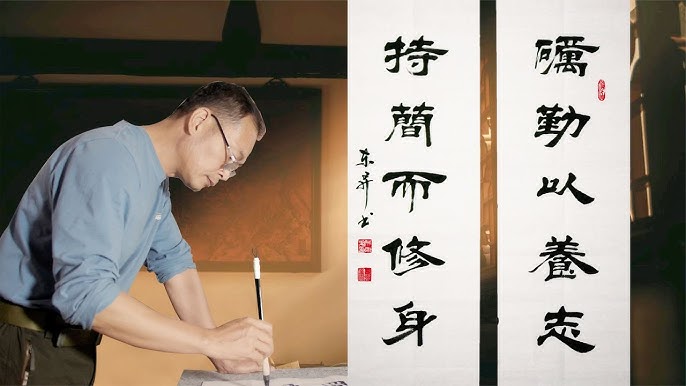 礪勤以養志
持簡而修身
东昇书